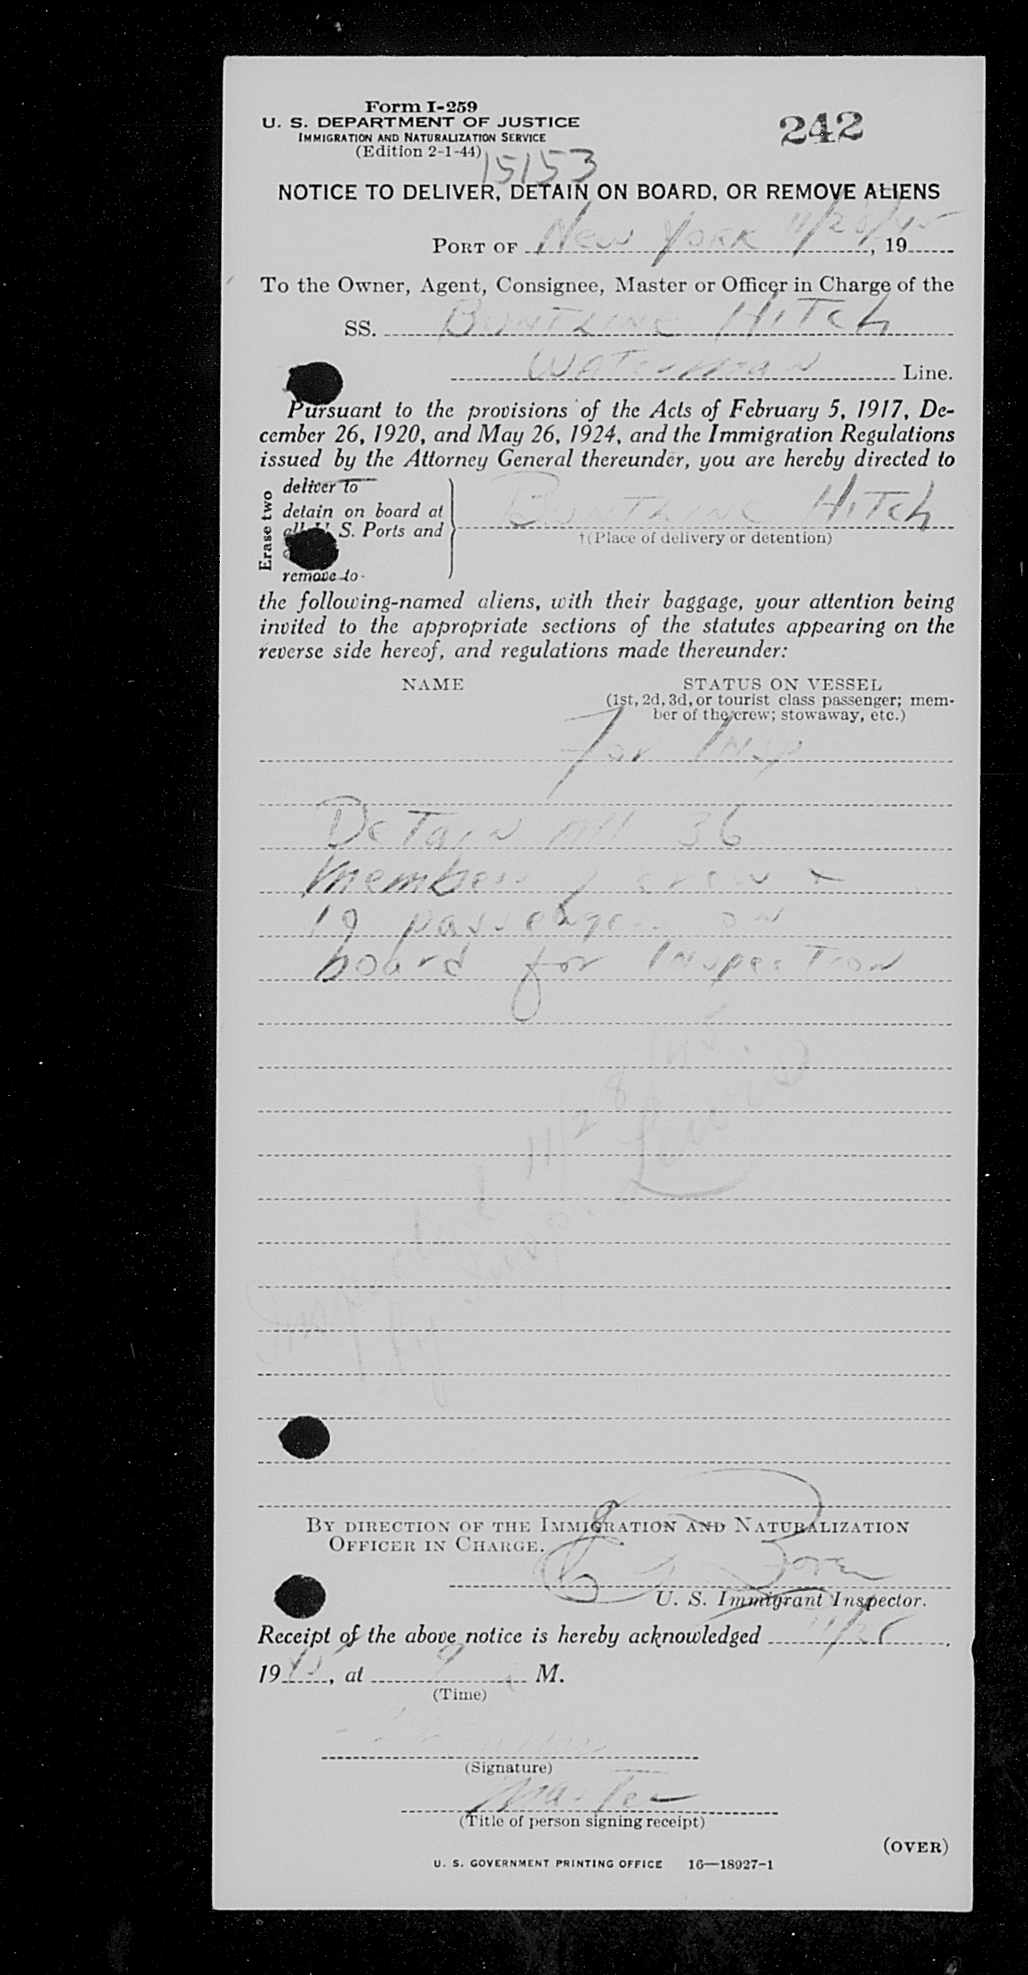 Form I-259
U. S. DEPARTMENT OF JUSTICE
IMMIGRATION AND NATURALIZATION SERVICE
(Edition 2-1-44)
242
15153
NOTICE TO DELIVER, DETAIN ON BOARD, OR REMOVE ALIENS
PORT OF New York 11/28/45, 19
To the Owner, Agent, Consignee, Master or Officer in Charge of the
SS. Buntline Hitch
Waterman Line.
Pursuant to the provisions of the Acts of February 5, 1917, De-
cember 26, 1920, and May 26, 1924, and the Immigration Regulations
issued by the Attorney General thereunder, you are hereby directed to
Erase two
deliver to
detain on board at
all U. S. Ports and
remove to
Buntline Hitch
†(Place of delivery or detention)
the following-named aliens, with their baggage, your attention being
invited to the appropriate sections of the statutes appearing on the
reverse side hereof, and regulations made thereunder:
NAME
STATUS ON VESSEL
(1st, 2d, 3d, or tourist class passenger; mem-
ber of the crew; stowaway, etc.)
For Insp
Detain All 36
members of crew +
19 passengers on
board for Inspection
11/28
BY DIRECTION OF THE IMMIGRATION AND NATURALIZATION
OFFICER IN CHARGE.
U. S. Immigrant Inspector.
Receipt of the above notice is hereby acknowledged 11/28,
1945, at 9 M.
(Time)
(Signature)
Master
(Title of person signing receipt)
(OVER)
U. S. GOVERNMENT PRINTING OFFICE 16—18927-1